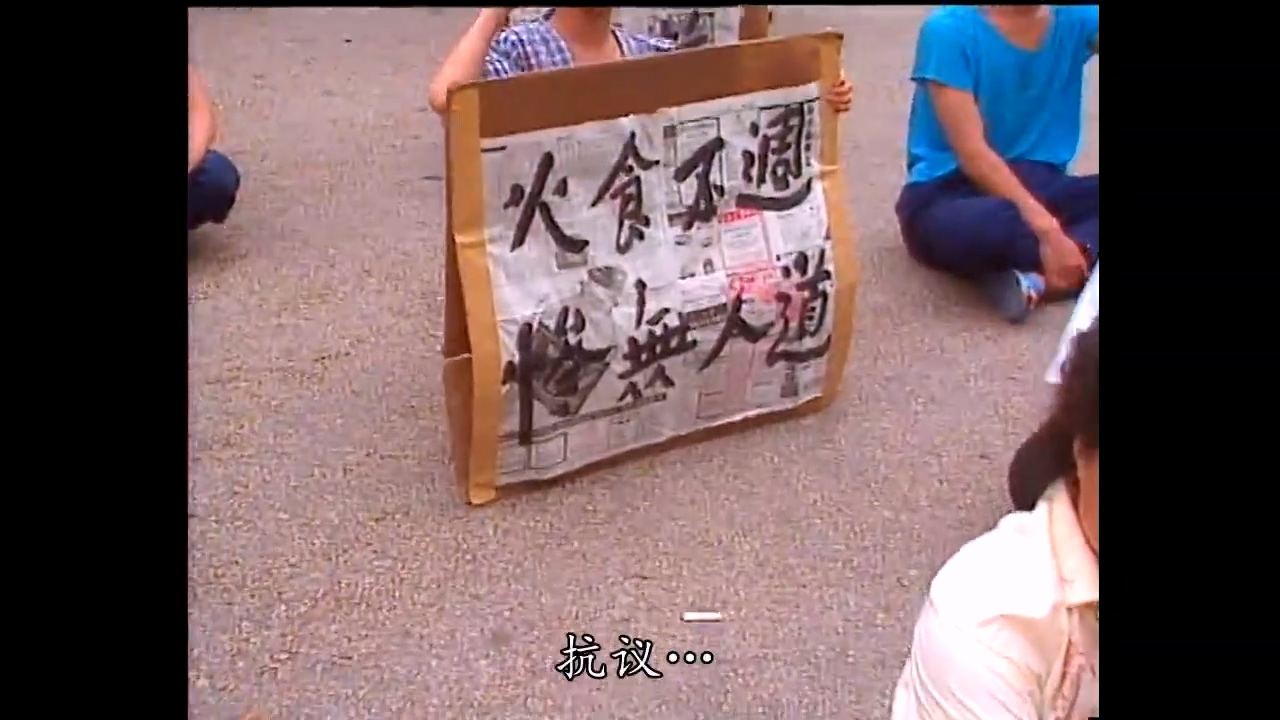 火食不週
惨無人道
抗议…